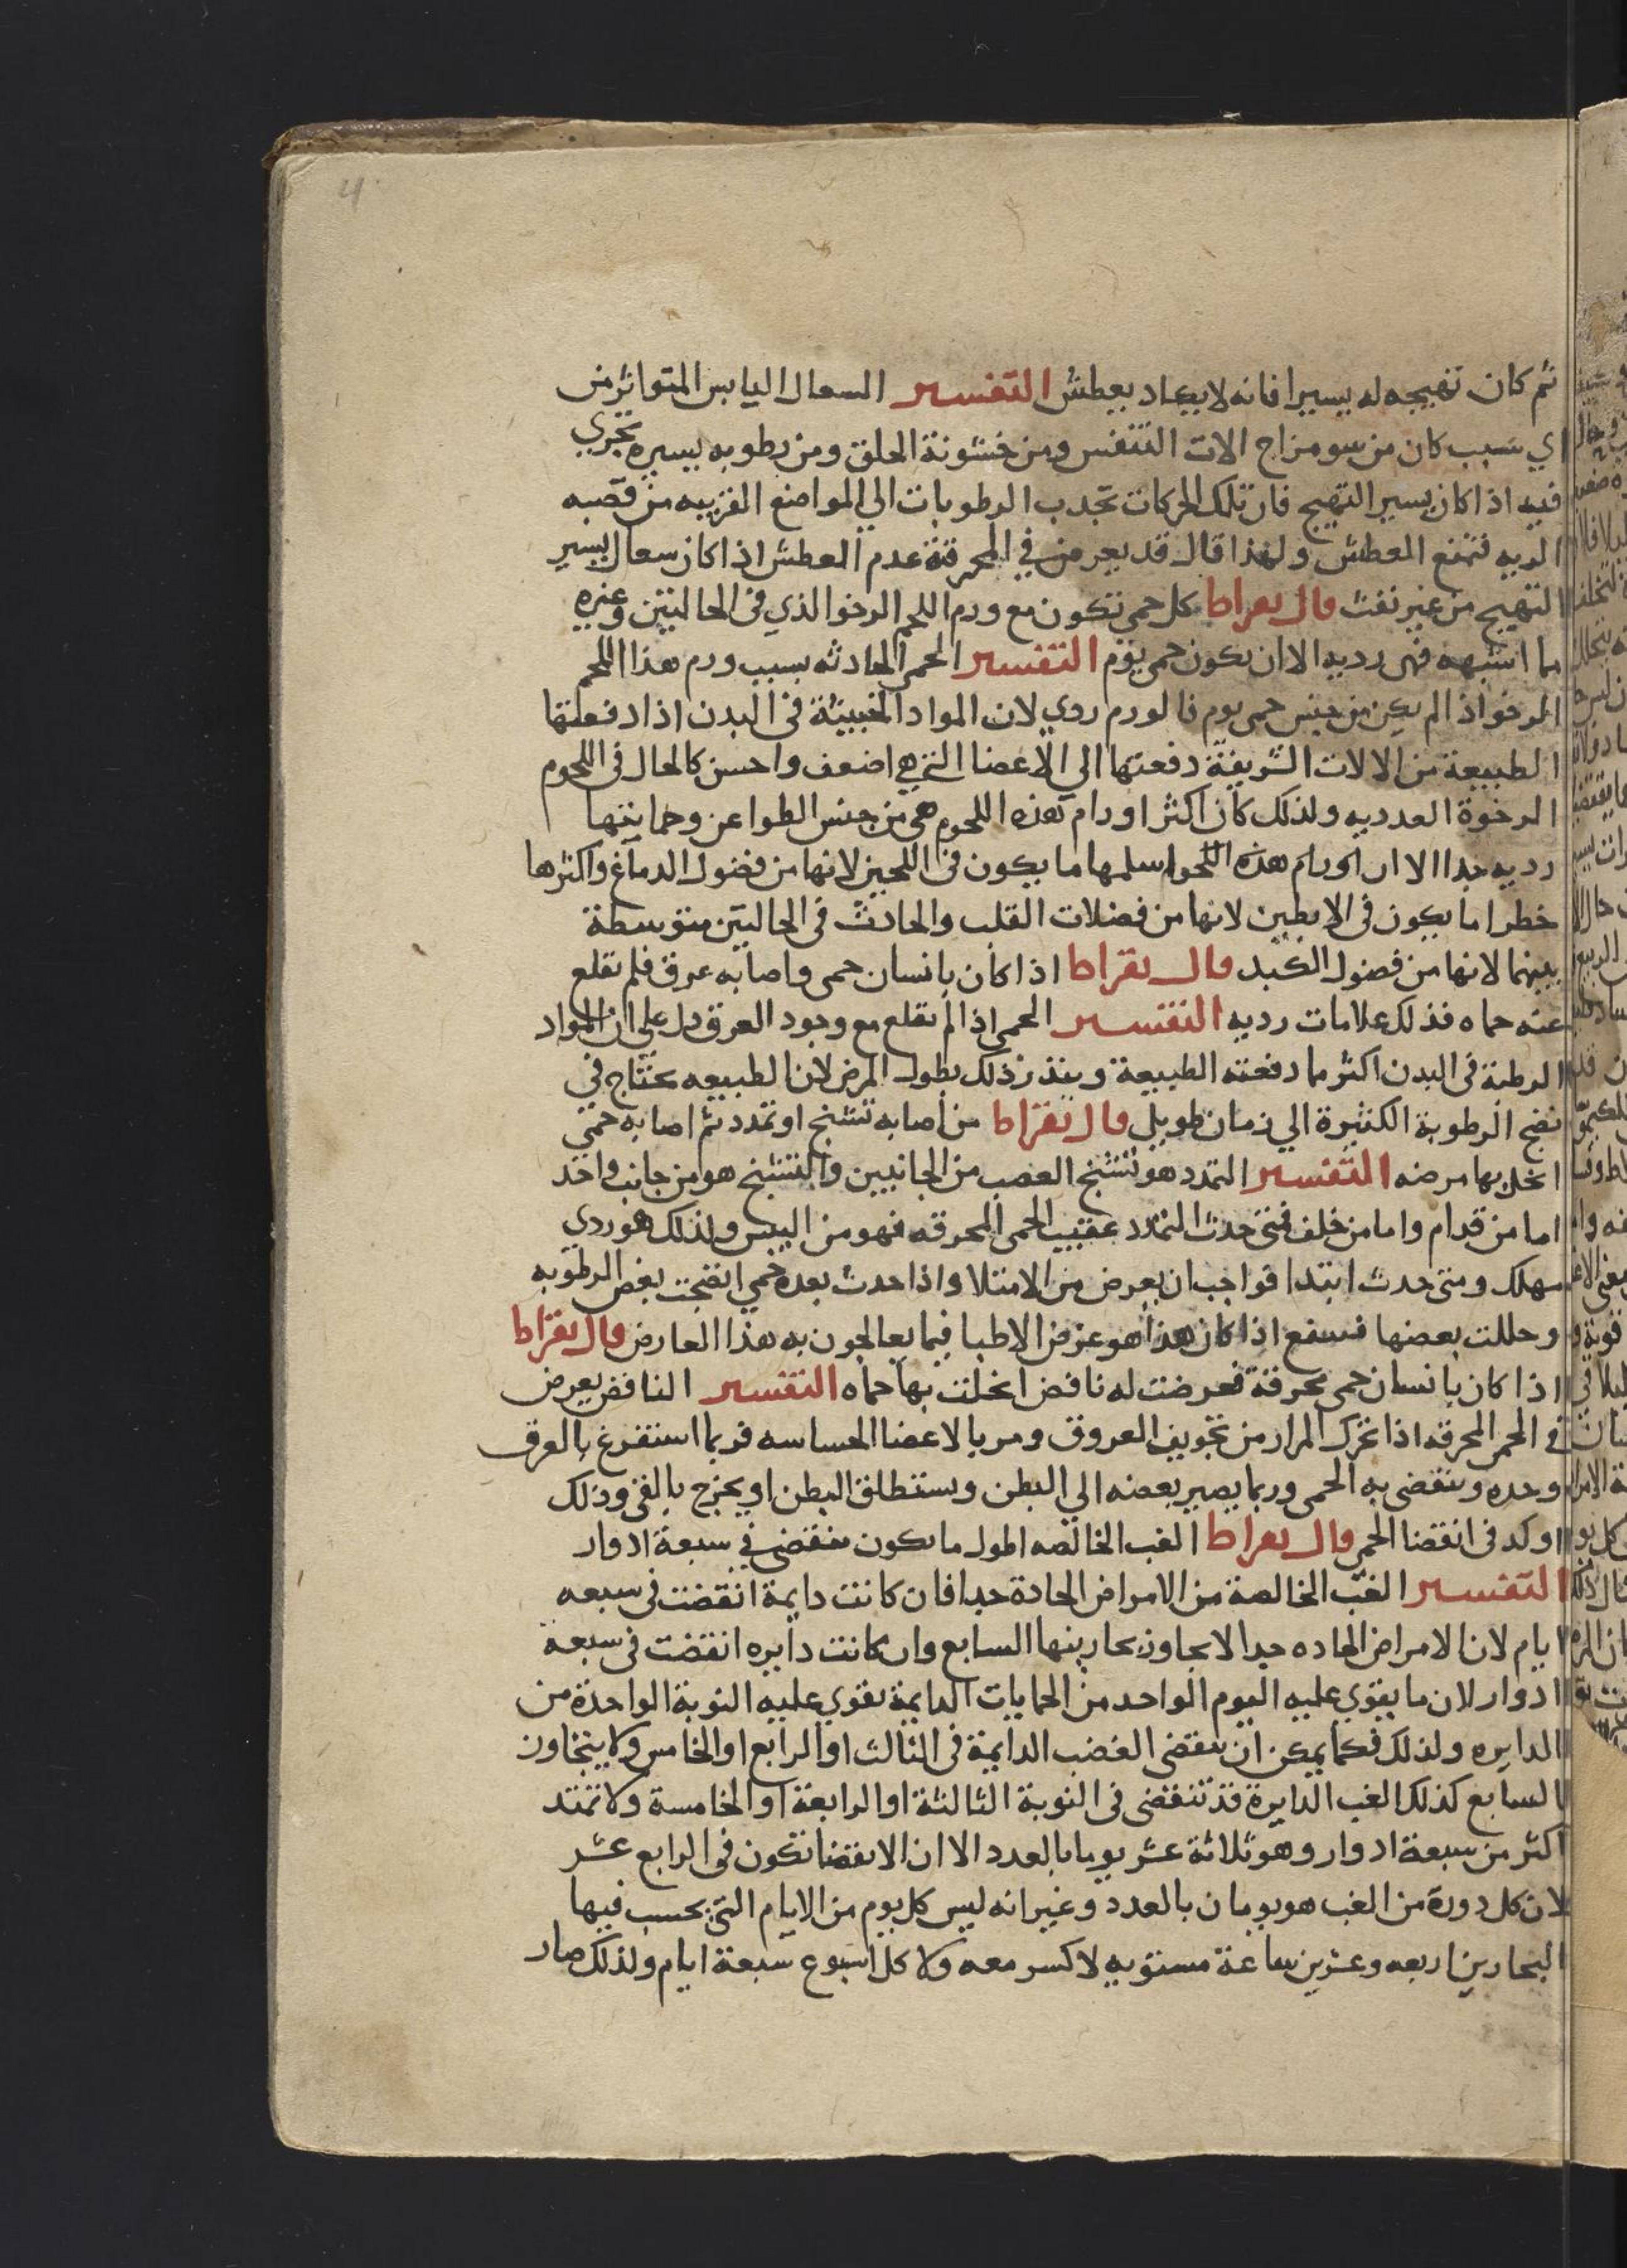 4
ثم كان تهيجه له يسيرا فانه لا يكاد يعطش التفسير السعال اليابس المتواتر من
اي سبب كان من سو مزاج الات التنفس ومن خشونة الحلق ومن رطوبه يسيره تجري
فيه اذا كان يسير التهيج فان تلك الحركات تجدب الرطوبات الي المواضع القريبه من قصبه
الريه فتمنع العطش ولهذا قال قد يعرض في المحرقة عدم العطش اذا كان سعال يسير
التهيج من غير نفث قال بقراط كل حمي تكون مع ورم اللحم الرخوا الذي في الحالبين وغيره
مما اشبهه فهي رديه الا ان يكون حمي يوم التفسير الحمي الحادثه بسبب ورم هذا اللحم
الرخو اذ الم يكن من جنس حمي يوم فالورم ردي لان المواد الخبيثة في البدن اذا دفعتها
الطبيعة من الالات الشريفة دفعتها الي الاعضا التي هي اضعف واحسن كالحال في اللحوم
الرخوة العدديه ولذلك كان اكثر اورام هذه اللحوم هي من جنس الطواعن وحمايتها
رديه جدا الا ان اورام هذه اللحوم اسلمها ما يكون في اللحيين لانها من فضول الدماغ واكثرها
خطرا ما يكون في الابطين لانها من فضلات القلب والحادث في الحالبين متوسطة
بينهما لانها من فضول الكبد قال بقراط اذا كان بانسان حمى واصابه عرق فلم تقلع
عنه حماه فذلك علامات رديه التفسير الحمي اذ الم تقلع مع وجود العرق دل علي ان المواد
الرطبة في البدن اكثر مما دفعته الطبيعة وينذر ذلك بطول المرض لان الطبيعه تحتاج في
نضج الرطوبة الكثيرة الي زمان طويل قال بقراط من اصابه تشنج او تمدد ثم اصابه حمي
انحل بها مرضه التفسير التمدد هو تشنج العصب من الجانبين والتشنج هو من جانب واحد
اما من قدام واما من خلف فمتى حدث التمدد عقيب الحمى المحرقه فهو من اليبس ولذلك هو ردي
مهلك ومتى حدث ابتدا فواجب ان يعرض من الامتلا واذا حدث بعده حمي انضجت بعض الرطوبه
وحللت بعضها فينتفع اذا كان هذا هو غرض الاطبا فيما يعالجون به هذا العارض قال بقراط
اذا كان بانسان حمى محرقة فعرضت له نافض انحلت بها حماه التفسير النافض يعرض
في الحمى المحرقه اذا تحرك المرار من تجويف العروق ومر بالاعضا الحساسه فربما استفرغ بالعرق
وحده وتنقضى به الحمى وربما يصير بعضه الي البطن ويستطلق البطن او يخرج بالقي وذلك
اوكد في انقضا الحمى قال بقراط الغب الخالصه اطول ما تكون تنقضي في سبعة ادوار
التفسير الغب الخالصة من الامراض الحادة جدا فان كانت دايمة انقضت في سبعه
ايام لان الامراض الحاده جدا لا يجاوز بحارينها السابع وان كانت دايره انقضت في سبعة
ادوار لان ما يقوي عليه اليوم الواحد من الحمايات الدايمة تقوي عليه النوبة الواحدة من
الدايره ولذلك فكما يمكن ان تنقضى الغضب الدايمة في الثالث او الرابع او الخامس ولا يتجاوز
السابع كذلك الغب الدايرة قد تنقضى في النوبة الثالثة او الرابعة او الخامسة ولا تمتد
اكثر من سبعة ادوار وهو ثلاثة عشر يوما بالعدد الا ان الانقضا تكون في الرابع عشر
لان كل دورة من الغب هو يومان بالعدد وغير انه ليس كل يوم من الايام التي يحسب فيها
البحارين اربعه وعشرين ساعة مستويه لا كسر معه ولا كل اسبوع سبعة ايام ولذلك صار